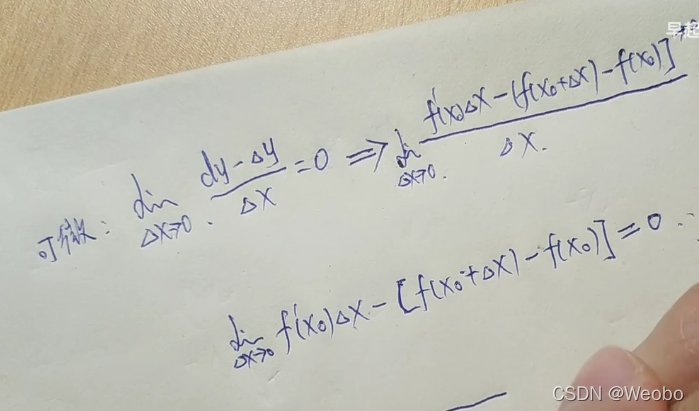 早起
可微: lim Δx→0 (dy-Δy)/Δx = 0 ⇒ lim Δx→0 (f'(x₀)Δx-(f(x₀+Δx)-f(x₀)])/Δx.
lim Δx→0 f'(x₀)Δx-[f(x₀+Δx)-f(x₀)]=0
CSDN @Weobo